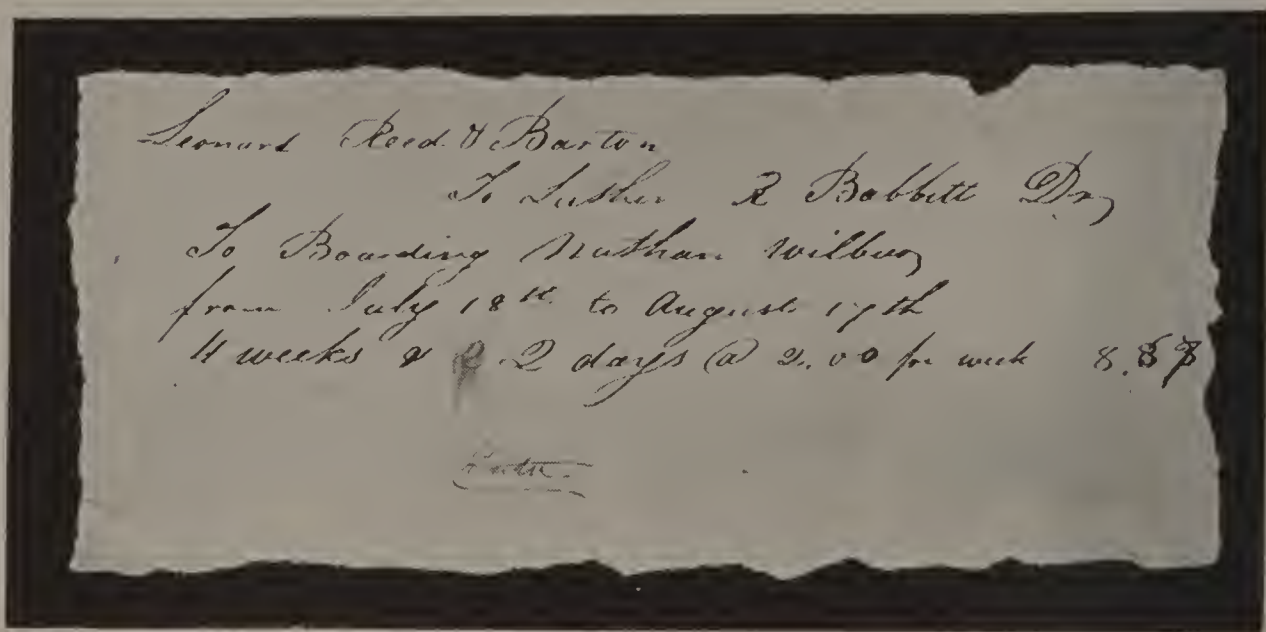 Leonard Reed & Barton
To Luther R Babbitt Dr
To Boarding Nathan Wilbur
from July 18th to August 17th
4 weeks & 2 days @ 2.00 per week 8.57